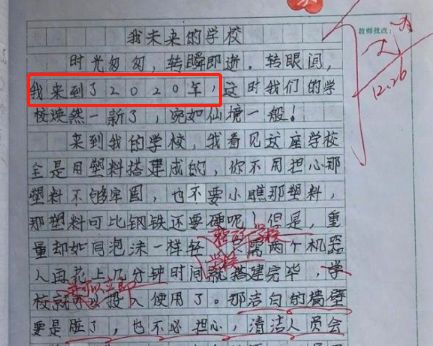 我未来的学校
教师批改:
时光匆匆,转瞬即逝。转眼间,
我来到了2020年,这时我们的学
校焕然一新了,宛如仙境一般!
12.26
来到我的学校,我看见这座学校
全是用塑料搭建成的,你不用担心那
塑料不够牢固,也不要小瞧那塑料,
那塑料可比钢铁还要硬呢!但是,重
量却如同泡沫一样轻
两个机器
学校
人再花上几分钟时间就搭建完毕,学
校就
投入使用了。那洁白的墙壁
要是脏了,也不必担心,清洁人员会